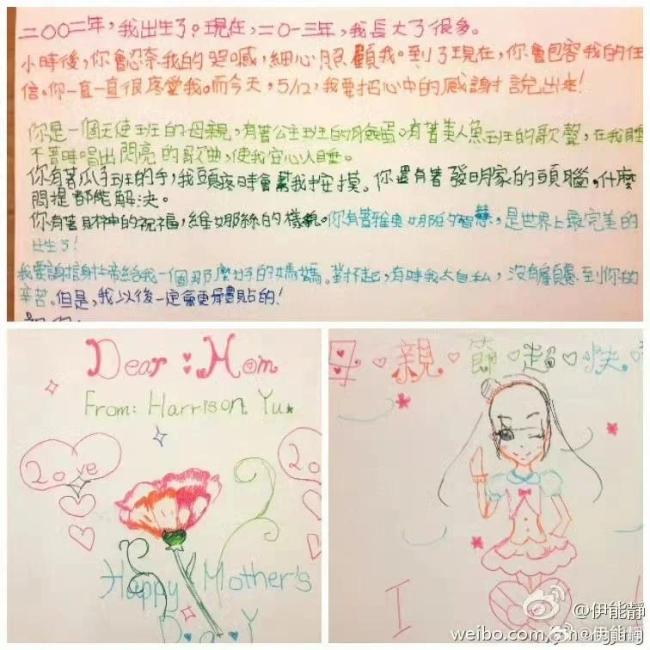 二〇〇二年，我出生了。現在，二〇一三年，我長大了很多。
小時後，你會忍奈我的哭喊，細心照顧我。到了現在，你會包容我的任
信。你一直一直很疼愛我。而今天，5/12，我要把心中的感謝說出來！
你是一個天使班的母親，有著公主班的臉蛋。有著美人魚班的歌聲，在我睡
不著時唱出閃亮的歌曲，使我安心入睡。
你有著瓜手班的手，我頭疼時會幫我按摸。你還有著發明家的頭腦。什麼
問提都能解決。
你有著財神的祝福，維娜絲的樣貌。你有著雅典娜的智慧，是世界上最完美的
出生了！
我要謝謝上帝給我一個那麼好的媽媽。對不起，有時我太自私，沒有顧慮到你的
辛苦。但是，我以後一定會更體貼的！
Dear : Mom
From: Harrison Yu
Love
Happy Mother's
Day
母親節超快
I
@伊能静
weibo.com/